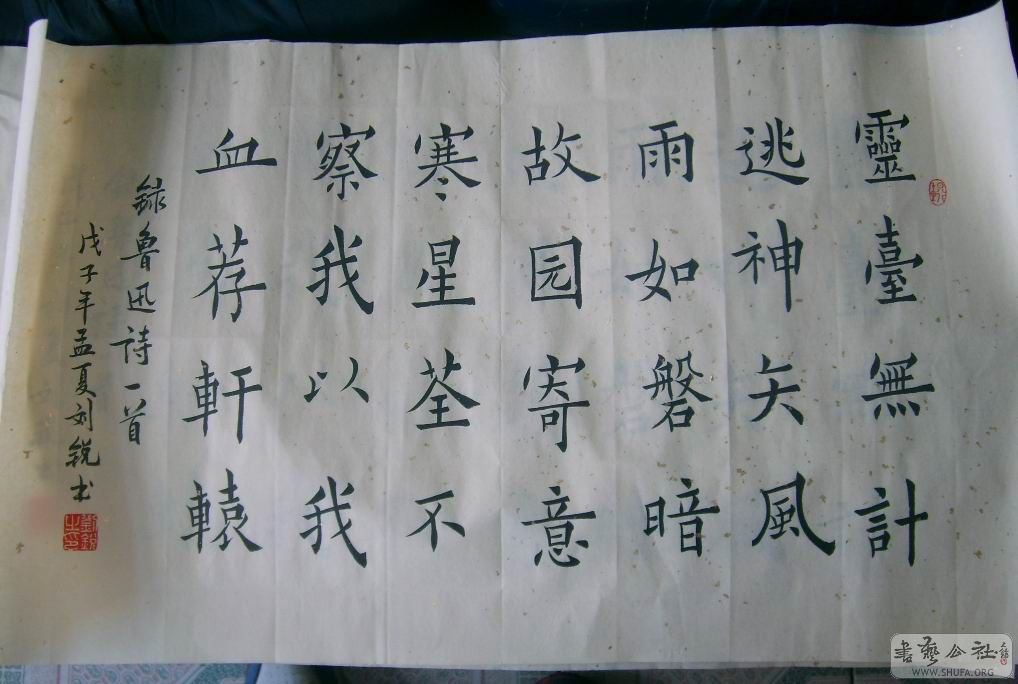 靈臺無計
逃神矢風
雨如磐暗
故园寄意
寒星荃不
察我我以我
血荐軒轅
録魯迅詩一首
戊子年孟夏刘锐书
劉銳之印
書藝公社
WWW.SHUFA.ORG